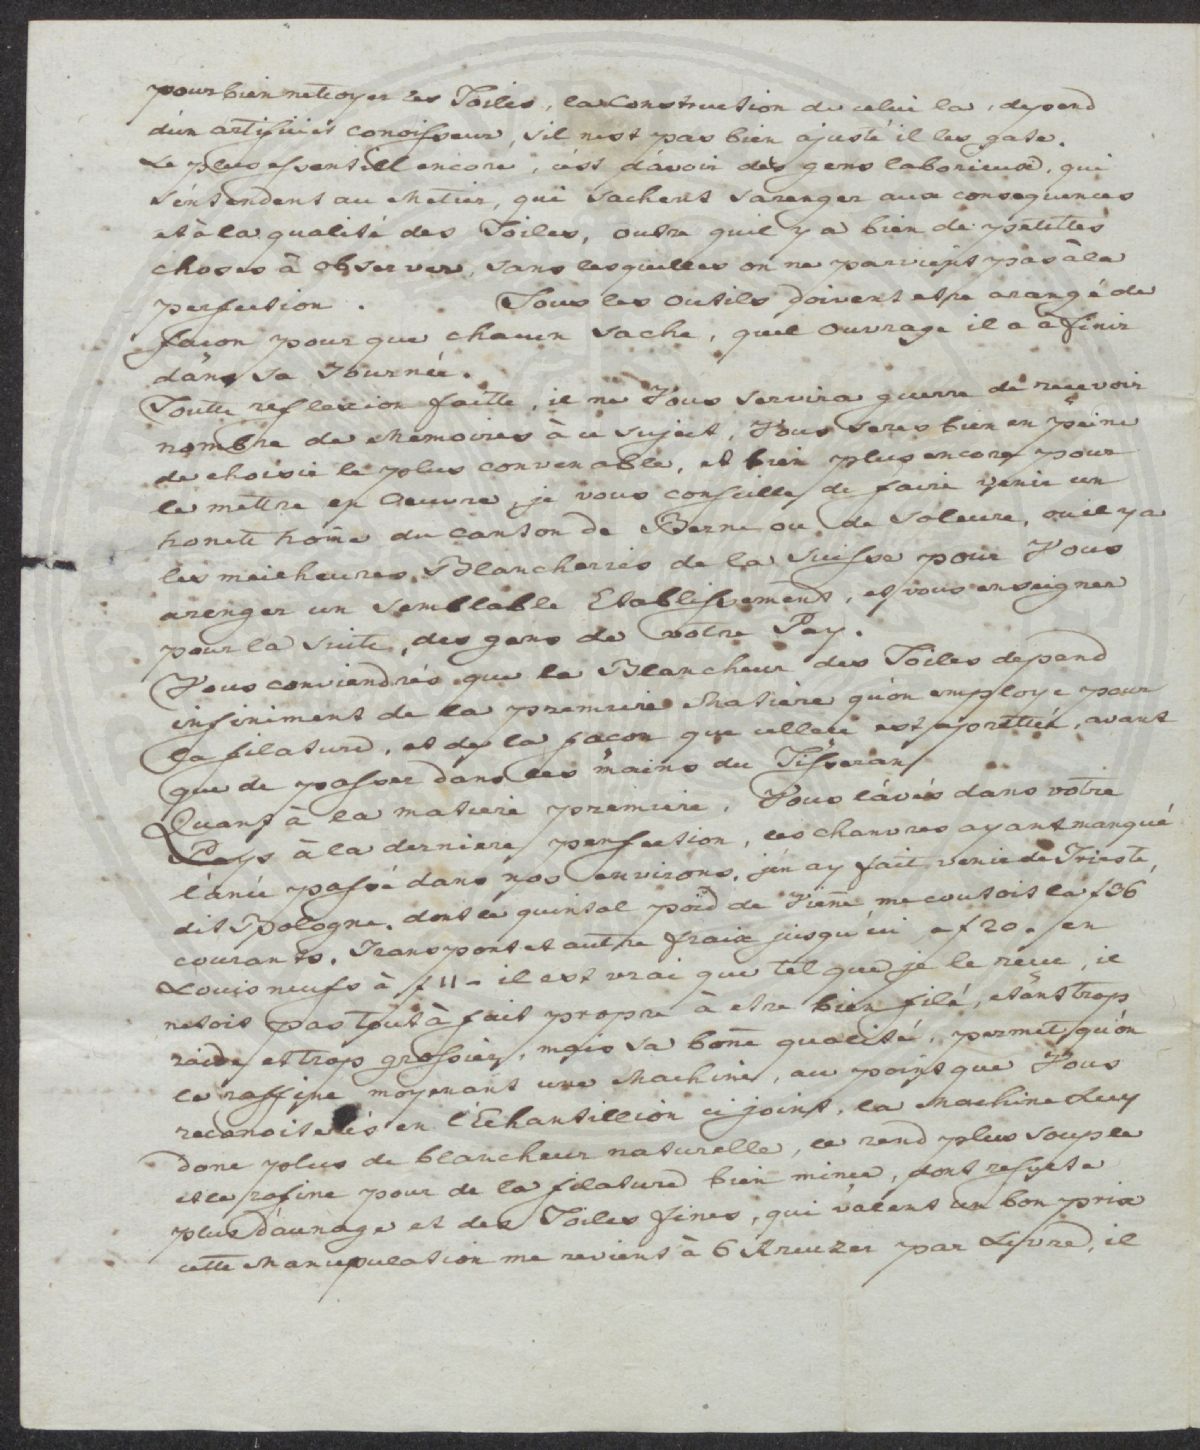 pour bien netoyer les Toiles, la Construction de celui la, depend
d'un artiste et conoisseur, s'il nest pas bien ajusté il les gate.
Le plus essentill encore, c'est d'avoir des gens laborieux, qui
s'entendent au Metier, qui sachent s'arenger aux consequences
et à la qualité des Toiles, outre quil y a bien de petittes
choses à observer, sans lesquelles on ne parvient pas à la
perfection. Tous les outils doivent etre arangé de
facon pour que chacun sache, quel ouvrage il a à finir
dans sa Journée.
Toutte reflexion faitte, il ne Vous servira guerre de recevoir
nombre de Memoires à ce suject, Vous seres bien en peine
de choisir le plus convenable, et bien plus encore pour
le mettre en Oeuvre, je vous conseille de faire venir un
honete home du canton de Berne ou de Soleure, ou il y a
les meilheures Blancherries de la Suisse pour Vous
arenger un semblable Etablissement, et vous enseigner
pour la suite, des gens de votre Pay.
Vous conviendrés que la Blancheur des Toiles depend
infiniment de la premiere Matiere qu'on employe pour
la filature, et de la facon que cellecy est aprettée, avant
que de passer dans les mains du Tisseran
Quant à la matiere premiere, Vous l'avés dans votre
Pays à la derniere perfection, les chanvres ayant manqué
l'anée passé dans nos environs, j'en ay fait venir de Trieste,
dit Bologne, dont le quintal poid de Viene me coutoit la f 36
courants, Transport et autre fraix jusqu'ici, a f 20. en
Louisneufs à f 11 - il est vrai que tel que je le recu, il
netoit pas tout à fait propre à etre bien filé, etant trop
raide et trop grossier, mais sa bone qualité, permet, qu'on
le raffine moyenant une Machine, au point que Vous
reconoiterés en l'Echantillion ci joint, la Machine Luy
done plus de blancheur naturelle, le rend plus souple
et le rafine pour de la filature bien mince, dont resulte
plus d'aunage et des Toiles fines, qui valent un bon prix
cette Manipulation me revient à 6 Kreuzer par Livre, il